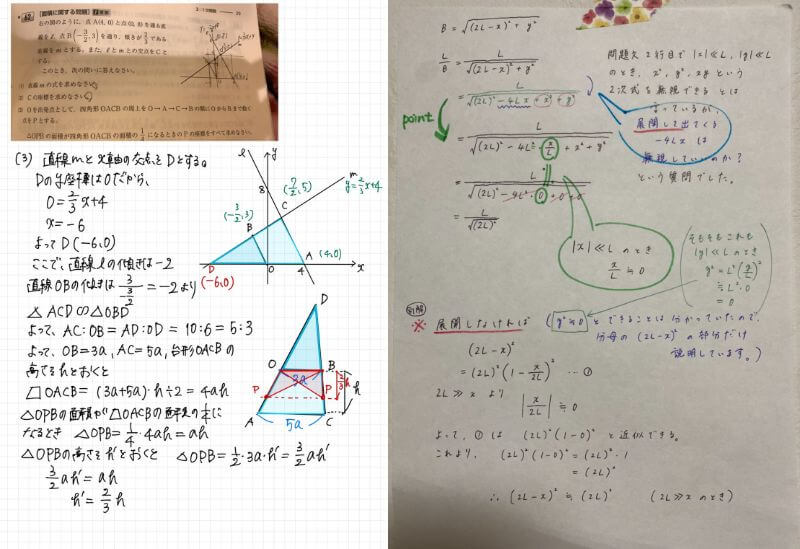 62 [面積に関する問題]
右の図のように、点A(4, 0)と点(0, 8)を通る直
線をℓ、点B(-3/2, 3)を通り、傾きが2/3である
直線をmとする。また、ℓとmとの交点をCと
する。
このとき、次の問いに答えなさい。
(1) 直線mの式を求めなさい。
(2) Cの座標を求めなさい。
(3) Oを出発点として、四角形OACBの周上をO→A→C→Bの順にOからBまで動く
点をPとする。
△OPBの面積が四角形OACBの面積の1/4になるときのPの座標をすべて求めなさい。
(3) 直線mとx軸の交点をDとする。
Dのy座標は0だから、
0=2/3x+4
x=-6
よってD(-6,0)
ここで、直線ℓの傾きは-2
直線OBの傾きは 3/-3/2=-2より
△ACD∽△OBD
よって、AC:OB=AD:OD=10:6=5:3
よって、OB=3a, AC=5a, 台形OACBの
高さをhとおくと
□OACB=(3a+5a)·h÷2=4ah
△OPBの面積が□OACBの面積の1/4に
なるとき △OPB=1/4·4ah=ah
△OPBの高さをh'とおくと △OPB=1/2·3a·h'=3/2ah'
3/2ah'=ah
h'=2/3h
ℓ
y
m
8
C
B
y=2/3x+4
(-3/2,3)
A
(4,0)
D
O
4
x
(-6,0)
D
O
B
3a
2/3h
h
P
P
A
5a
C
B=√(2L-x)²+y²
L/B=L/√(2L-x)²+y²
=L/√(2L)²-4Lx+x²+y²
point
=L/√(2L)²-4L²·x/L+x²+y²
=L/√(2L)²-4L²·0+0+0
=L/√(2L)²
問題文2行目で |x|≪L, |y|≪L
のとき, x², y², xy という
2次式を無視できる とは
言っているが、
展開して出てくる
-4Lx は
無視していいのか?
という質問でした。
|x|≪L のとき
x/L≒0
そもそもこれも
|y|≪L のとき
y²=L²(y/L)²
≒L²·0
=0
別解
※ 展開しなければ
(y²≒0 とできることは分かっていたので、
分母の (2L-x)² の部分だけ
説明しています。)
(2L-x)²
=(2L)²(1-x/2L)² … ①
2L≫x より
|x/2L|≒0
よって、①は (2L)²(1-0)² と近似できる。
これより、 (2L)²(1-0)²=(2L)²·1
=(2L)²
∴ (2L-x)²≒(2L)² (2L≫x のとき)